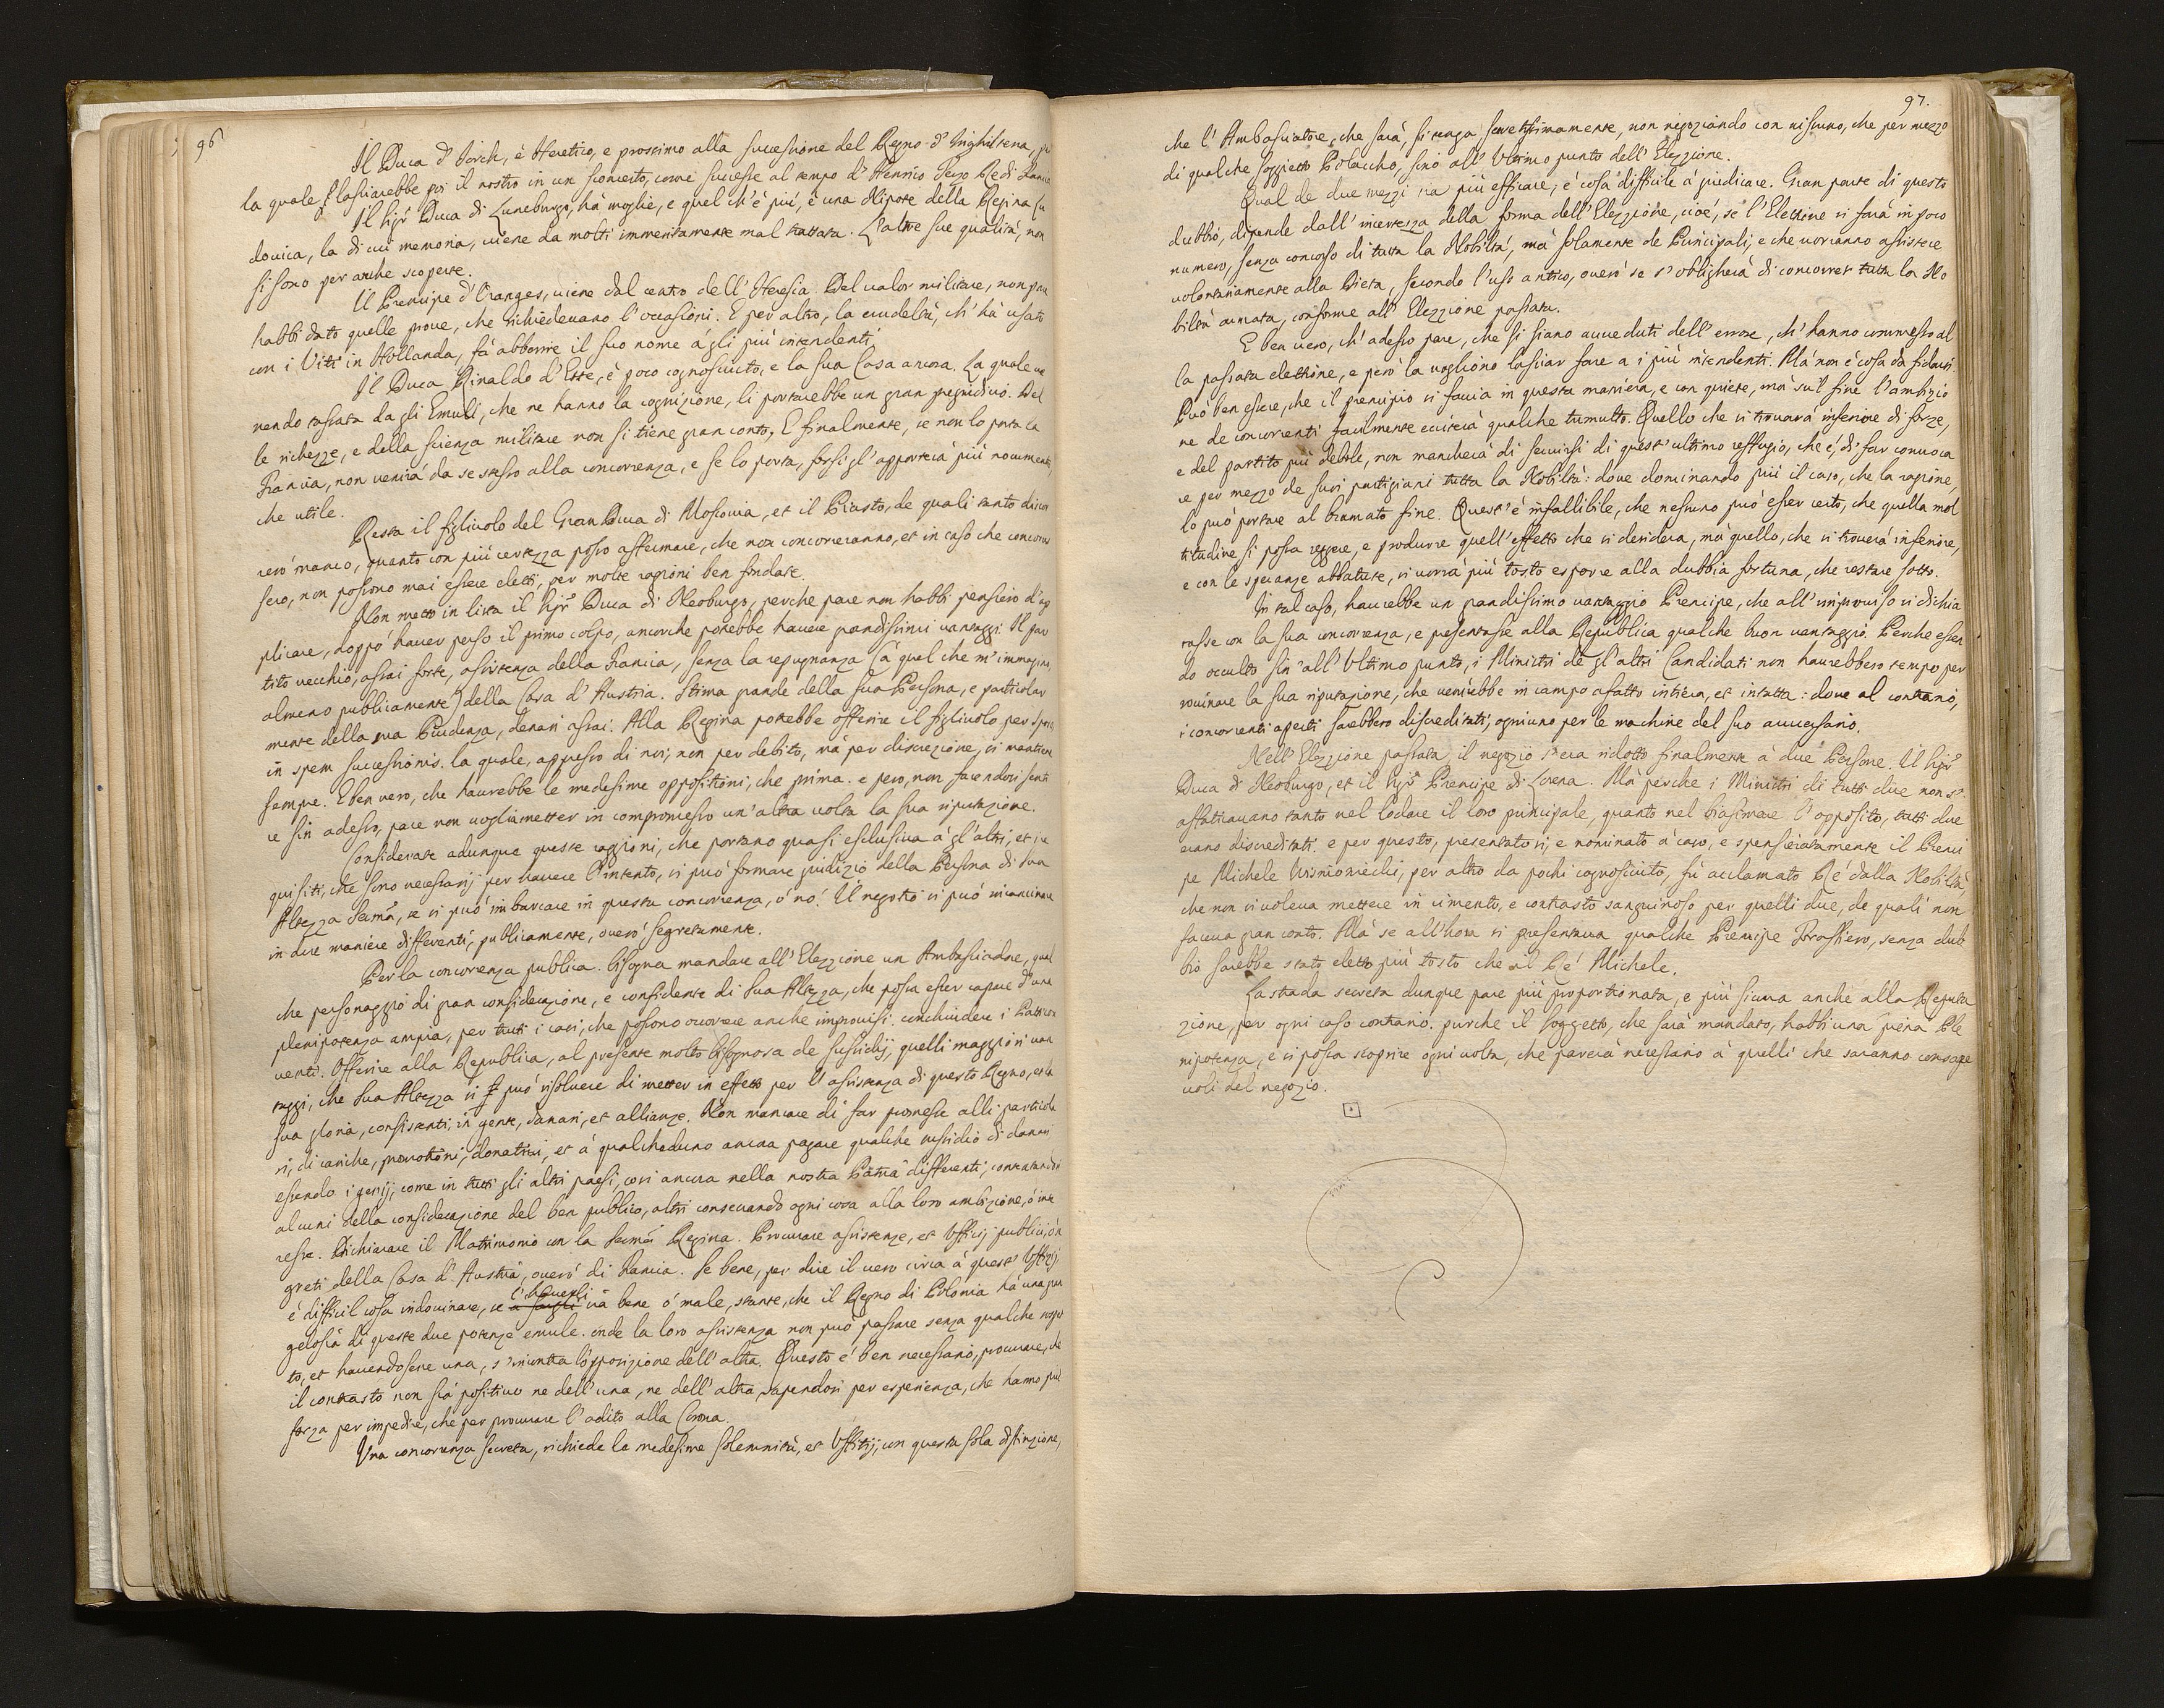 96
Il Duca d'Iorch, è Heretico, e prossimo alla successione del Regno d'Inghilterra,
la quale lasciarebbe poi il nostro in un sconcerto, come successe al tempo d'Henrico Terzo Re di Francia
Il Sigr Duca di Luneburgo, ha moglie, e quel ch'è più, è una Nipote della Regina Lu
douica, la di cui memoria, uiene da molti immeritamente mal trattata. L'altre sue qualità, non
si sono per anche scoperte.
Il Prencipe d'Oranges, uiene dal centro dell'Heresia. Del ualor militare, non pare
habbi dato quelle proue, che richiedeuano l'occasioni. E per altro, la crudeltà, ch'hà usato
con i Viti in Hollanda, fà abborrire il suo nome à gli più intendenti.
Il Duca Rinaldo d'Este, è poco cognosciuto, e la sua Casa ancora. La quale ue
nendo tassata da gli Emuli, che ne hanno la cognizione, li portarebbe un gran pregiudicio. Del
le richezze, e della scienza militare non si tiene gran conto. E finalmente, se non lo porta la
Francia, non uenirà da se stesso alla concorrenza, e se lo porta, forsi gl'apporterà più nocumenti,
che utile.
Resta il figliuolo del Gran Duca di Moscouia, et il Piasto, de quali tanto discor
rerò manco, quanto con più certezza posso affermare, che non concorreranno, et in caso che concorres
sero, non possono mai essere eletti, per molte ragioni ben fondate.
Non metto in lista il Sigr Duca di Neoburgo, perche pare non habbi pensiero d'ap
plicare, doppò hauer perso il primo colpo, ancorche potrebbe hauere grandissimi uantaggi. Il par
tito uecchio, assai forte, assistenza della Francia, senza la repugnanza (à quel che m'immagino,
almeno publicamente) della Casa d'Austria. Stima grande della sua Persona, e particolar
mente della sua Prudenza, denari assai. Alla Regina potrebbe offerire il figliuolo per sposo,
in spem successionis. la quale, appresso di noi, non per debito, mà per discrezione, si mantiene
sempre. E ben uero, che haurebbe le medesime oppositioni, che prima. e però, non facendosi senti
re sin adesso, pare non uoglia metter in compromesso un'altra uolta la sua riputazione.
Considerate adunque queste raggioni, che portano quasi esclusiua à gl'altri, et i re
quisiti, che sono necessarij per hauere l'intento, si può formare giudizio della Persona di Sua
Altezza Serma, se si può imbarcare in questa concorrenza, ò nò. Il negotio si può incaminare
in due maniere differenti, publicamente, ouerò segretamente.
Per la concorrenza publica. bisogna mandare all'Elezzione un Ambasciadore, qual
che personaggio di gran considerazione, e confidente di Sua Altezza, che possa esser capace d'una
plenipotenza ampia, per tutti i casi, che possono occorrere anche improuisi. conchiudere i Patti con
uenti. Offerire alla Republica, al presente molto bisognosa de sussidij, quelli maggiori uan
taggi, che Sua Altezza si può risoluere di metter in effetto per l'assistenza di questo Regno, et la
sua gloria, consistenti, in gente, danari, et allianze. Non mancare di far promesse alli particola
ri, di cariche, promotioni, donatiui, et à qualcheduno ancora pagare qualche sussidio di danari
essendo i genij, come in tutti gli altri paesi, cosi ancora nella nostra Patria differenti, contentandosi
alcuni della considerazione del ben publico, altri conseruando ogni cosa alla loro ambizione, ò inte
resse. Dichiarare il Matrimonio con la Serma Regina. Procurare assistenze, et Uffitij publici, ò se
greti della Casa d'Austria, ouerò di Francia. Se bene, per dire il uero circa à questi Uffizij
è difficil cosa indouinare, se l'hauerli uà bene ò male, stante, che il Regno di Polonia hà una gran
gelosia di queste due potenze emule. onde la loro assistenza non può passare senza qualche sospet
to, et hauendosene una, s'incontra l'opposizione dell'altra. Questo è ben necessario, procurare, che
il contrasto non sia positiuo ne dell'una, ne dell'altra, sapendosi per esperienza, che hanno più
forza per impedire, che per procurare l'adito alla Corona.
Una concorrenza secreta, richiede le medesime solennità, et Uffitij, con questa sola distinzione,
97.
che l'Ambasciatore, che sarà, si tenga secretissimamente, non negoziando con nissuno, che per mezzo
di qualche soggetto Polaccho, sino all'Ultimo punto dell'Elezzione.
Qual de due mezzi sia più efficace, è cosa difficile à giudicare. Gran parte di questo
dubbio, dipende dall'incertezza della forma dell'Elezzione, cioè, se l'Elettione si farà in poco
numero, senza concorso di tutta la Nobiltà, mà solamente de Principali, e che uorranno assistere
uolontariamente alla Dieta, secondo l'uso antico, ouerò se s'obligherà di concorrer tutta la No
biltà armata, conforme all'Elezzione passata.
E ben uero, ch'adesso pare, che si siano auueduti dell'errore, ch'hanno commesso al
la passata elettione, e però la uogliono lasciar fare a i più intendenti. Mà non è cosa da fidarsi
Può ben essere, che il principio si faccia in questa maniera, e con quiete, mà sul fine l'ambizio
ne de concorrenti facilmente ecciterà qualche tumulto. Quello che si trouarà inferiore di forze,
e del partito più debole, non mancherà di seruirsi di quest'ultimo reffugio, che è, di far conuoca
re per mezzo de suoi partigiani tutta la Nobiltà: doue dominando più il caso, che la ragione,
lo può portare al bramato fine. Quest'è infallibile, che nessuno può esser certo, che quella mol
titudine si possa reggere, e produrre quell'effetto che si desidera, mà quello, che si trouerà inferiore,
e con le speranze abbattute, si uorrà più tosto esporre alla dubbia fortuna, che restare sotto.
In tal caso, haurebbe un grandissimo uantaggio Prencipe, che all'improuiso si dichia
rasse con la sua concorrenza, e presentasse alla Republica qualche buon uantaggio. Perche essen
do occulto sin'all'Ultimo punto, i Ministri de gl'altri Candidati non haurebbero tempo per
rouinare la sua riputazione, che uenirebbe in campo afatto intiera, et intatta: doue al contrario,
i concorrenti aperti sarebbero discreditati, ogniuno per le machine del suo auuersario.
Nell'Elezzione passata, il negozio s'era ridotto finalmente à due Persone. Il Sigr
Duca di Neoburgo, et il Sigr Prencipe di Lorena. Mà perche i Ministri di tutti due non s'
affaticauano tanto nel lodare il loro principale, quanto nel biasimare l'opposito, tutti due
erano discreditati. e per questo, presentatosi, e nominato à caso, e spensieratamente il Prenci
pe Michele Wisniowiechi, per altro da pochi cognosciuto, fù acclamato Rè dalla Nobiltà,
che non si uoleua mettere in cimento, e contrasto sanguinoso per quelli due, de quali non
faceua gran conto. Mà se all'hora si presentaua qualche Prencipe forastiero, senza dub
bio sarebbe stato eletto più tosto che il Rè Michele.
La strada secreta dunque pare più proportionata, e più sicura anche alla Reputa
zione, per ogni caso contrario. purche il soggetto, che sarà mandato, habbi una piena Ple
nipotenza, e si possa scoprire ogni uolta, che parerà necessario à quelli che saranno consape
uoli del negozio.